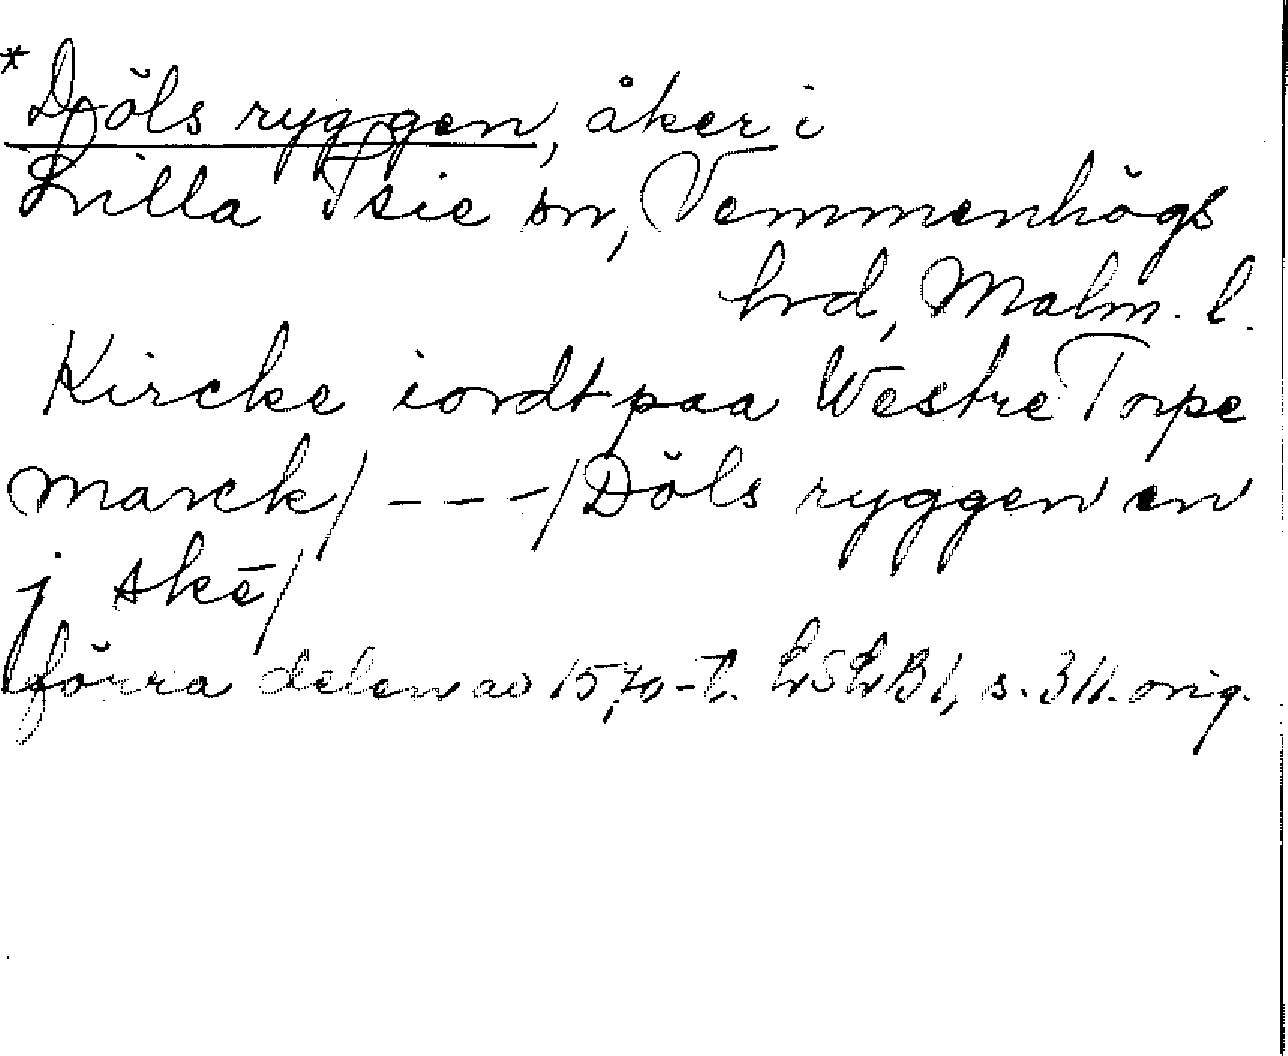 *Döls ryggen, åker i
Lilla Isie sn, Vemmenhögs
hrd, Malm. l.
Kircke iordt paa Westre Torpe
marck/ - - -/ Döls ryggen en
j skē/
förra delen av 1570-t. LSLB I, s. 311. orig.